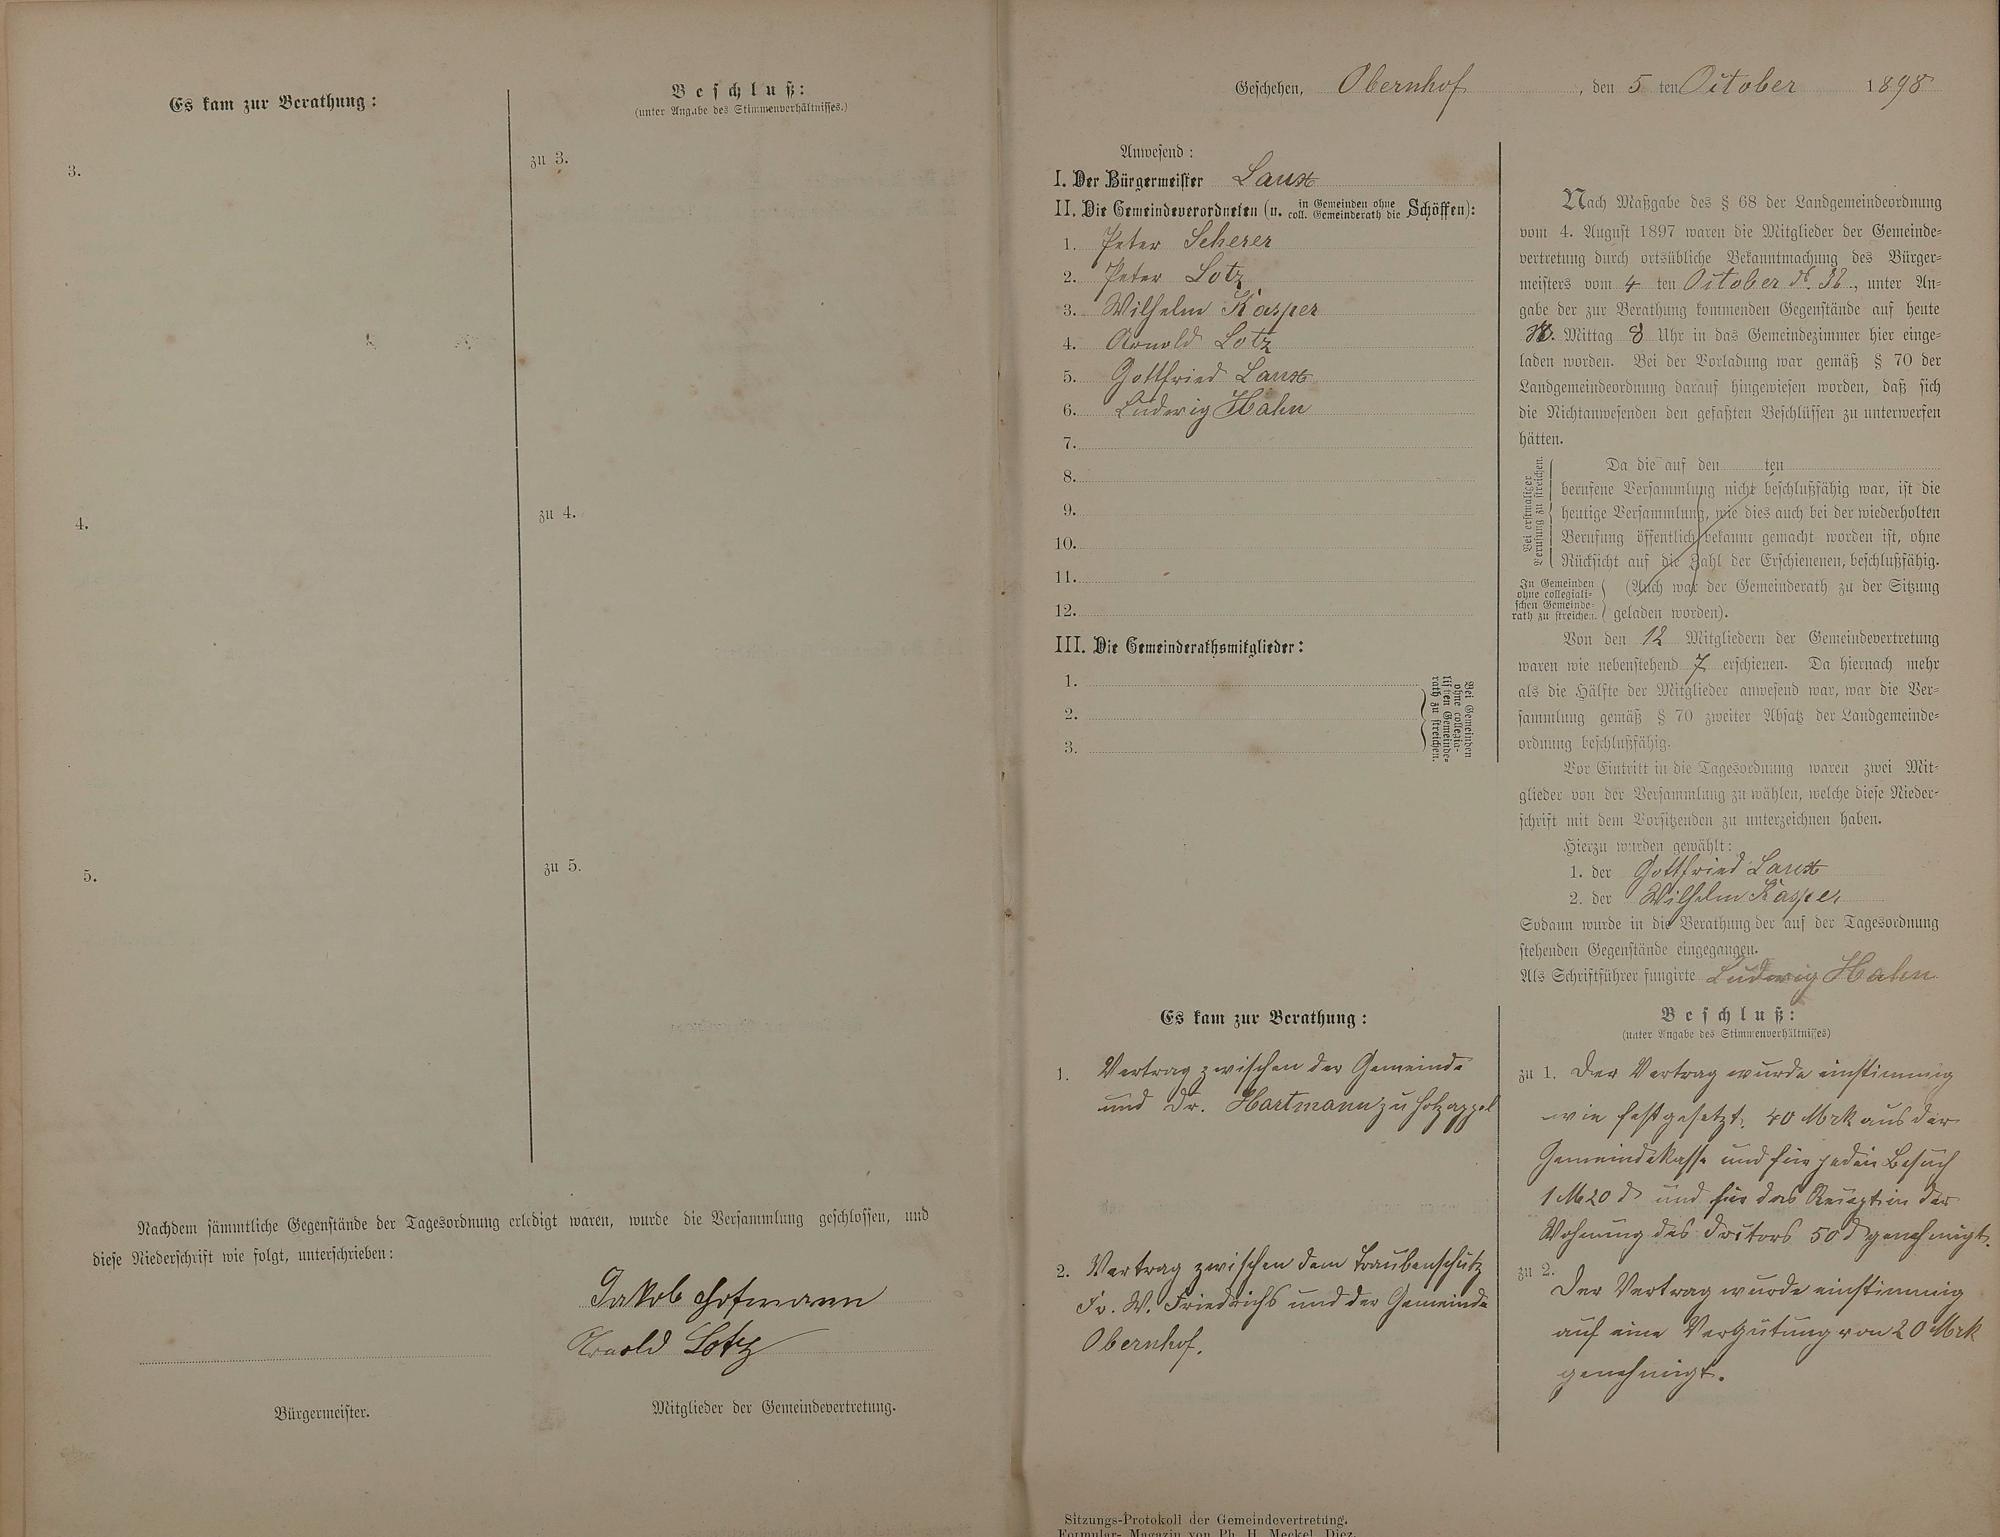 Es kam zur Berathung:
Beschluß:
(unter Angabe des Stimmenverhältnisses.)
3.
zu 3.
4.
zu 4.
5.
zu 5.
Nachdem sämmtliche Gegenstände der Tagesordnung erledigt waren, wurde die Versammlung geschlossen, und
diese Niederschrift wie folgt, unterschrieben:
Jakob Hofmann
Arnold Lotz
Bürgermeister.
Mitglieder der Gemeindevertretung.
Geschehen, Obernhof, den 5 ten October 1898
Anwesend:
I. Der Bürgermeister Laux
II. Die Gemeindeverordneten (u. in Gemeinden ohne coll. Gemeinderath die Schöffen):
1. Peter Scherer
2. Peter Lotz
3. Wilhelm Kasper
4. Arnold Lotz
5. Gottfried Laux
6. Ludwig Hahn
7.
8.
9.
10.
11.
12.
III. Die Gemeinderathsmitglieder:
1.
2.
3.
Bei Gemeinden
ohne collegia-
lischen Gemeinde-
rath zu streichen.
Nach Maßgabe des § 68 der Landgemeindeordnung
vom 4. August 1897 waren die Mitglieder der Gemeinde-
vertretung durch ortsübliche Bekanntmachung des Bürger-
meisters vom 4 ten October unter An-
gabe der zur Berathung kommenden Gegenstände auf heute
Mittag 8 Uhr in das Gemeindezimmer hier einge-
laden worden. Bei der Vorladung war gemäß § 70 der
Landgemeindeordnung darauf hingewiesen worden, daß sich
die Nichtanwesenden den gefaßten Beschlüssen zu unterwerfen
hätten.
Bei erstmaliger
Berufung zu streichen.
Da die auf den ten
berufene Versammlung nicht beschlußfähig war, ist die
heutige Versammlung, wie dies auch bei der wiederholten
Berufung öffentlich bekannt gemacht worden ist, ohne
Rücksicht auf die Zahl der Erschienenen, beschlußfähig.
In Gemeinden
ohne collegiali-
schen Gemeinde-
rath zu streichen.
(Auch war der Gemeinderath zu der Sitzung
geladen worden).
Von den 12 Mitgliedern der Gemeindevertretung
waren wie nebenstehend 7 erschienen. Da hiernach mehr
als die Hälfte der Mitglieder anwesend war, war die Ver-
sammlung gemäß § 70 zweiter Absatz der Landgemeinde-
ordnung beschlußfähig.
Vor Eintritt in die Tagesordnung waren zwei Mit-
glieder von der Versammlung zu wählen, welche diese Nieder-
schrift mit dem Vorsitzenden zu unterzeichnen haben.
Hierzu wurden gewählt:
1. der Gottfried Laux
2. der Wilhelm Kasper
Sodann wurde in die Berathung der auf der Tagesordnung
stehenden Gegenstände eingegangen.
Als Schriftführer fungirte Ludwig Hahn
Es kam zur Berathung:
1. Vertrag zwischen der Gemeinde
und Dr. Hartmann zu Holzappel
2. Vertrag zwischen dem Traubenschütz
Fr. W. Friedrichs und der Gemeinde
Obernhof.
Beschluß:
(unter Angabe des Stimmenverhältnisses)
zu 1. Der Vertrag wurde einstimmig
wie festgesetzt. 40 Mrk aus der
Gemeindekasse und für jeden Besuch
1 M 20 d und für das Rezept in der
Wohnung des Doctors 50 d genehmigt.
zu 2.
Der Vertrag wurde einstimmig
auf eine Vergütung von 20 Mrk
genehmigt.
Sitzungs-Protokoll der Gemeindevertretung.
Formular-Magazin von Ph. H. Meckel, Diez.